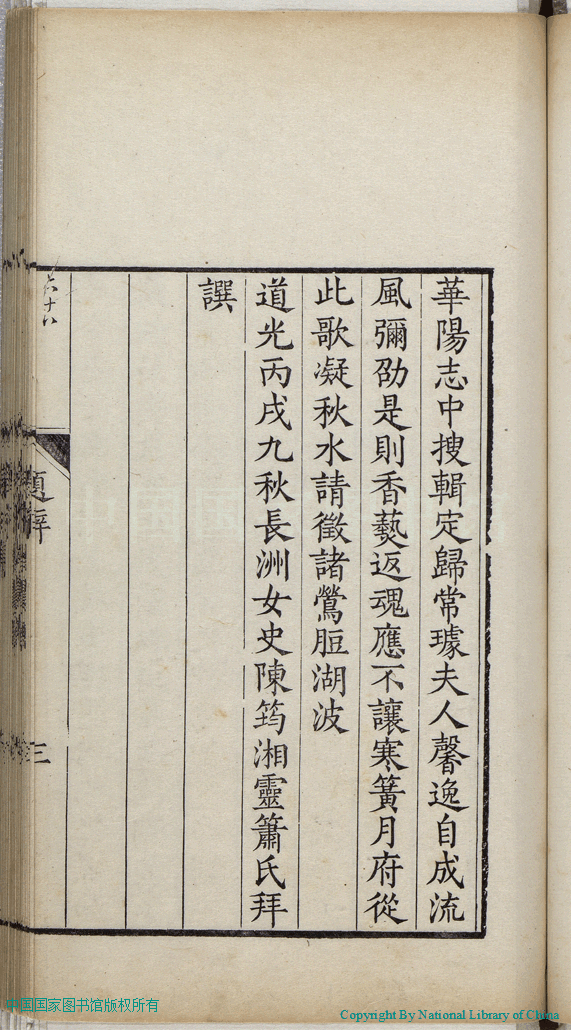 華陽志中搜輯定歸常璩夫人馨逸自成流
風彌劭是則香爇返魂應不讓寒簧月府從
此歌凝秋水請徵諸鶯脰湖波
道光丙戌九秋長洲女史陳筠湘靈簫氏拜
譔
題辭
三
六十八
中国国家图书馆版权所有
Copyright By National Library of China